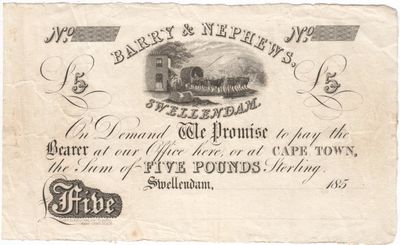 No. No.
BARRY & NEPHEWS,
£5 £5
SWELLENDAM.
On Demand We Promise to pay the
Bearer at our Office here, or at CAPE TOWN,
the Sum of FIVE POUNDS Sterling.
Swellendam, 185
Five